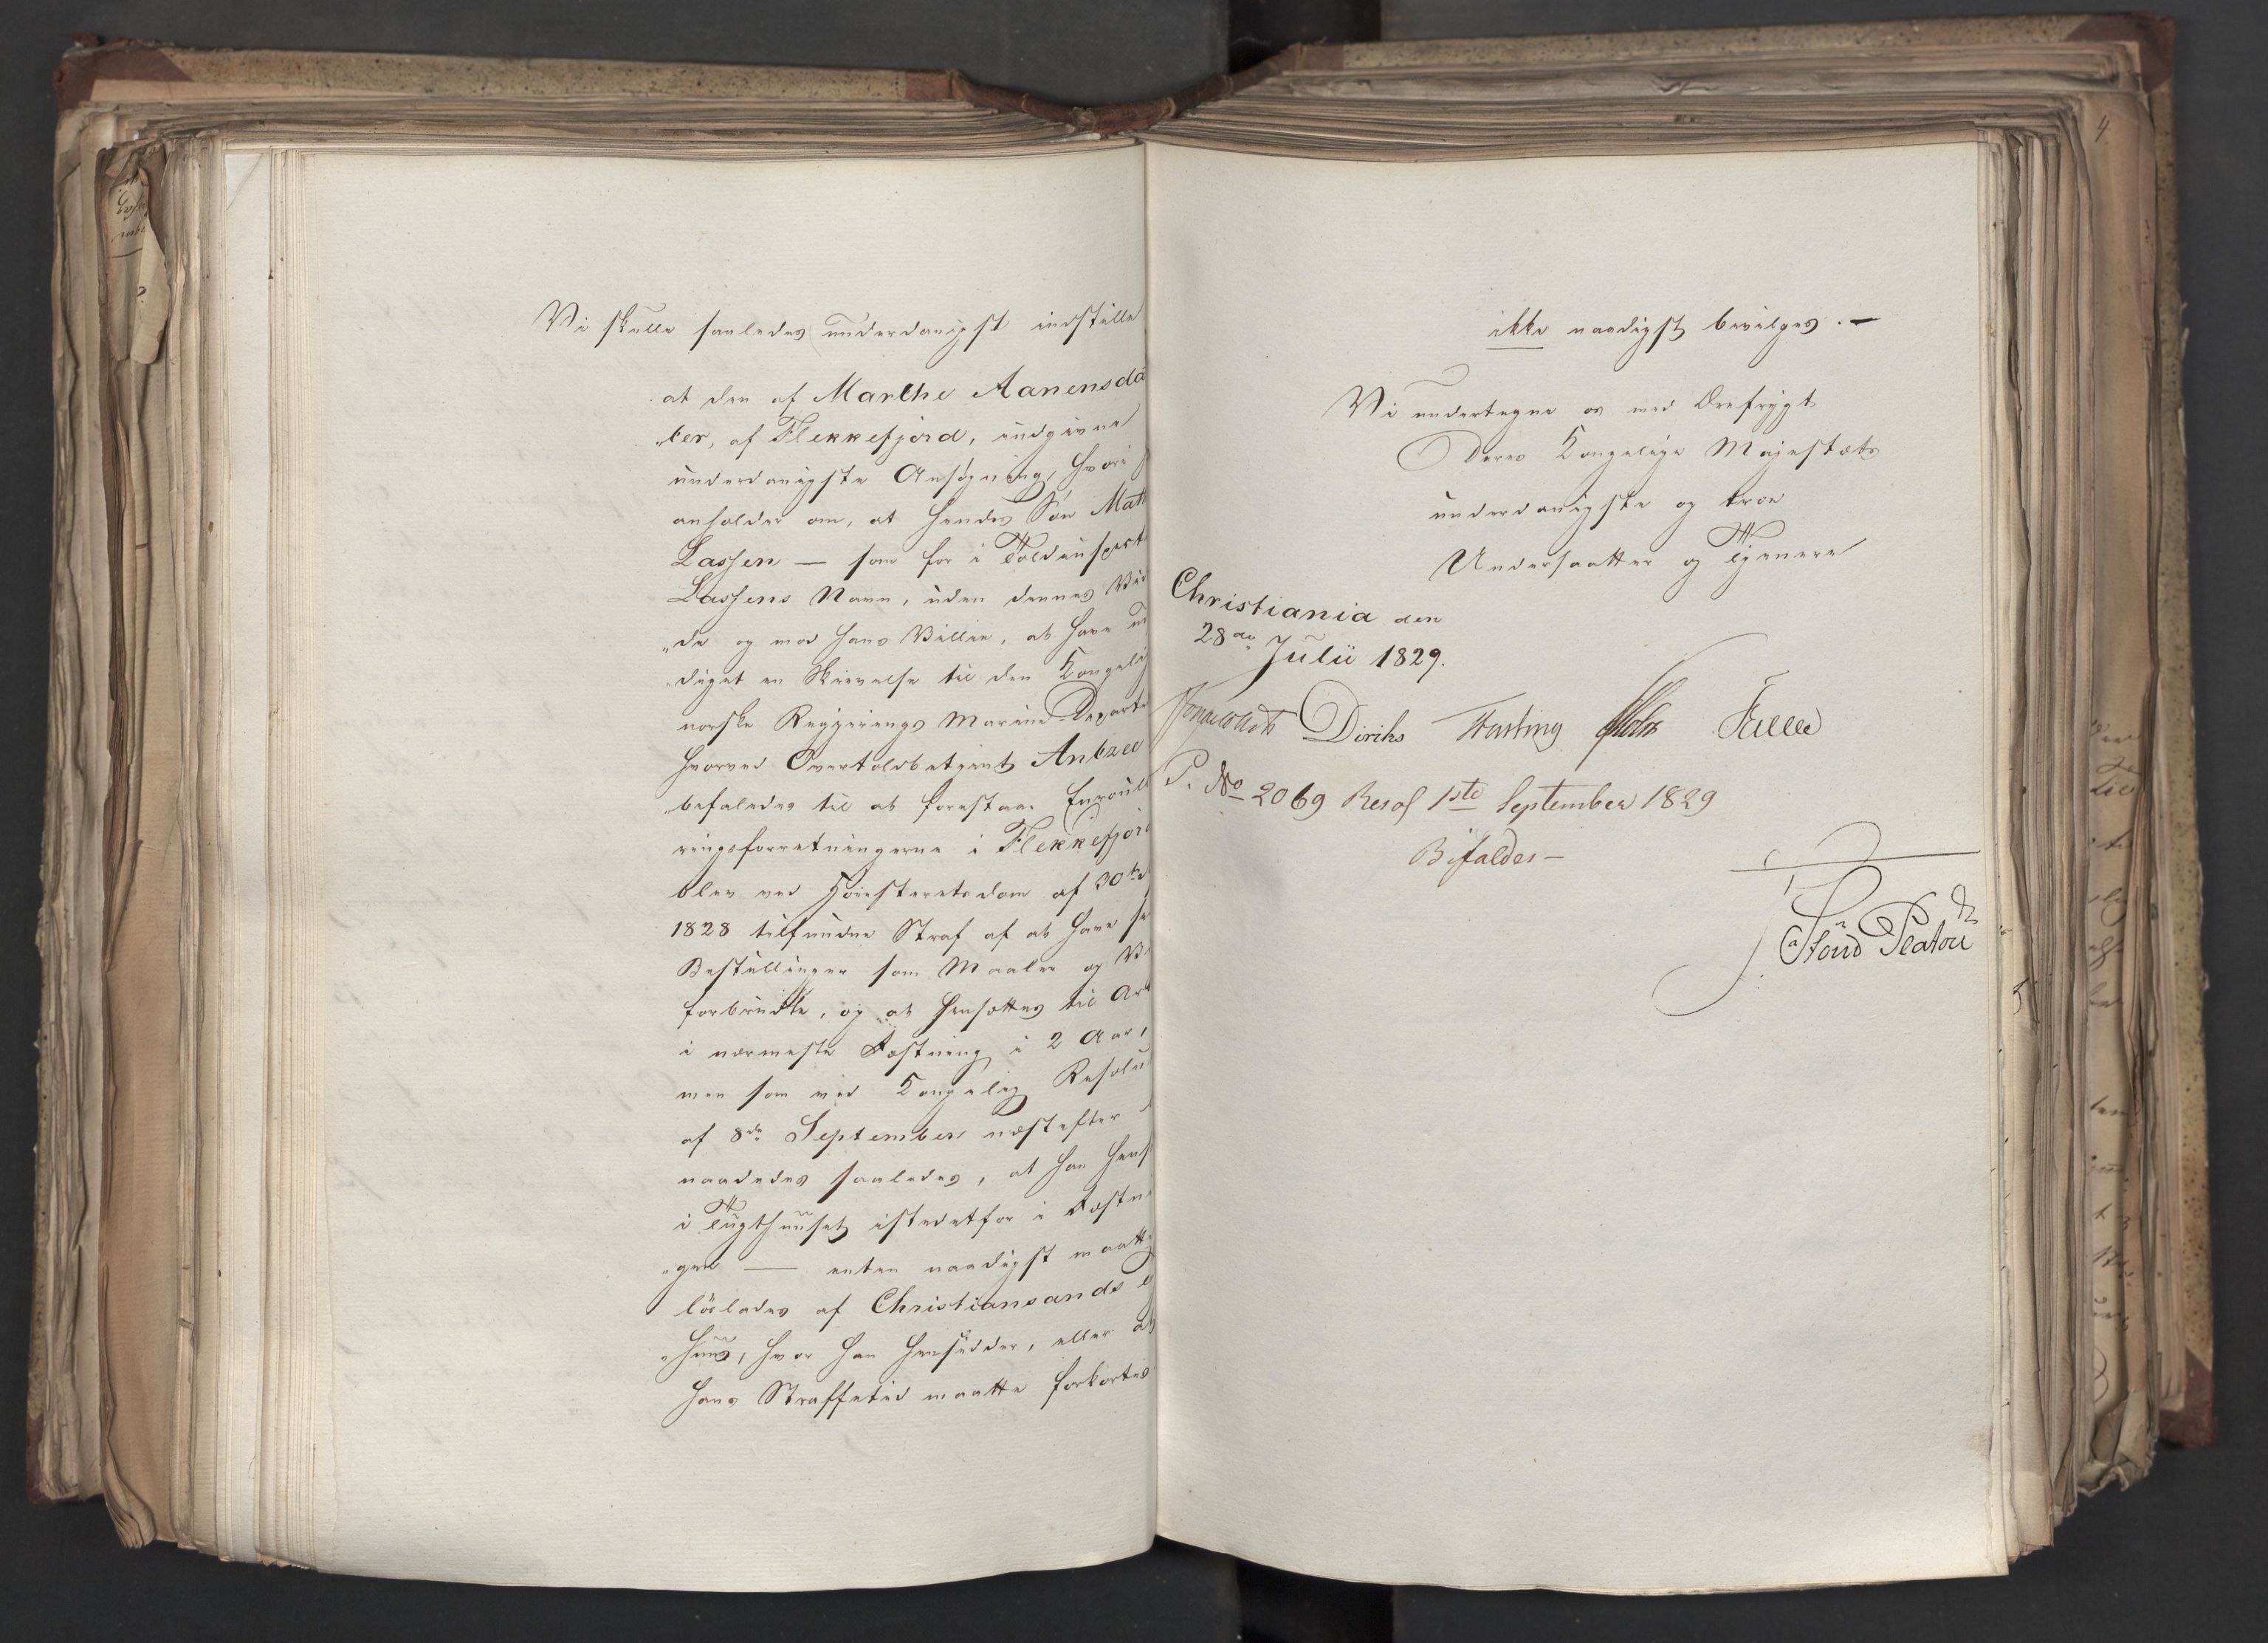 Vi skulle saaledes underdanigst indstille
at den af Marthe Aanensdat
„ter, af Flekkefjord, indgivne
underdanigste Ansøgning, hvori
anholder om, at hendes Søn Math
Lassen — som for i Toldinspect
Lassens Navn, uden dennes Vid
„de og mod hans Villie, at have ud
„diget en Skrivelse til den Kongelig
norske Regjerings Marine-Departe
hvorved Overtoldbetjent Antzee
„befaledes til at forestaae Enroull
ringsforretningerne i Flekkefjord
blev ved Høiesteretsdom af 30te
1828 tilfunden Straf af at have
Bestillinger som Maaler og V
forbrudte, og at hensættes til Ar
i nærmeste Fæstning i 2 Aar,
men som ved Kongelig Resolu
af 8de September næstefter
naadedes saaledes, at han hens
i Tugthuuset istedetfor i Fæstn
„gen — enten naadigst maatte
løslades af Christiansands
„huus, hvor han hensidder, eller at
hans Straffetid maatte forkortes
ikke naadigst bevilges. —
Vi undertegne os med Ærefrygt
Deres Kongelige Majestæts
underdanigste og troe
Undersaatter og Tjenere
Christiania den
28de Julii 1829.
Diriks Fasting Holst
P. No 2069 Resol 1ste September 1829
Bifaldes —
4.